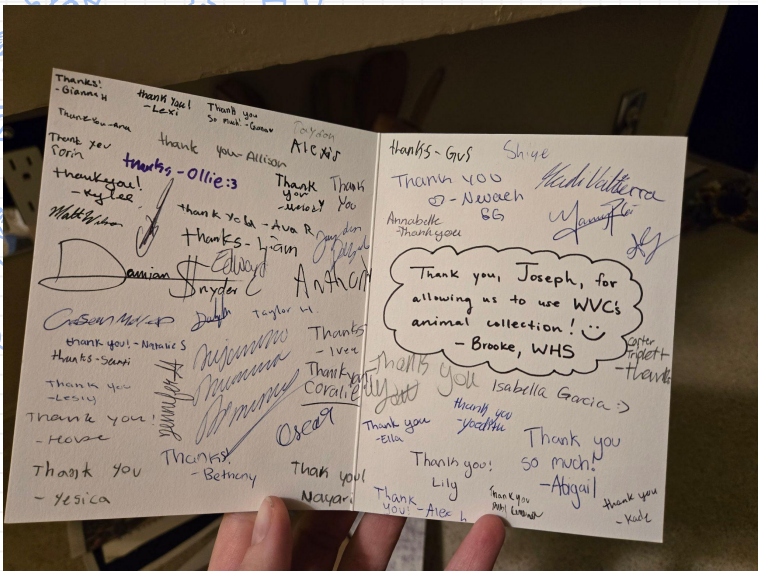 Thanks!
- Gianna H
thank you!
- Lexi
Thank you
so much! -
Alexis
Thank You - Ana
Thank you
thank you - Allison
thanks - Ollie :3
thankyou!
- Kylee
Thank
you
Thank
You
Matt Wilson
thank you - Ava R
thanks - Liam
Damian
Snyder
Edward
C
Anthony
Taylor H.
thank you! - Natalie S
thanks -
Thank you
- Lesly
Jennifer H
Thanks
- Ivee
Thank you
Coralie
Oscar
Thank you!
Thanks!
- Bethany
Thank you
- Yesica
Thank you!
Nayari
thanks - Gus
Thank you
- Nevaeh
SG
Annabelle
- Thank you
Thank you, Joseph, for
allowing us to use WVC's
animal collection! :)
- Brooke, WHS
Carter
Triplett
- thanks
Thank you
Isabella Garcia :)
Thank you
- Ella
thank you
Thank you
so much!
- Abigail
Thank you!
Lily
Thank
you! - Alex h
Thank you
thank you
- Kade